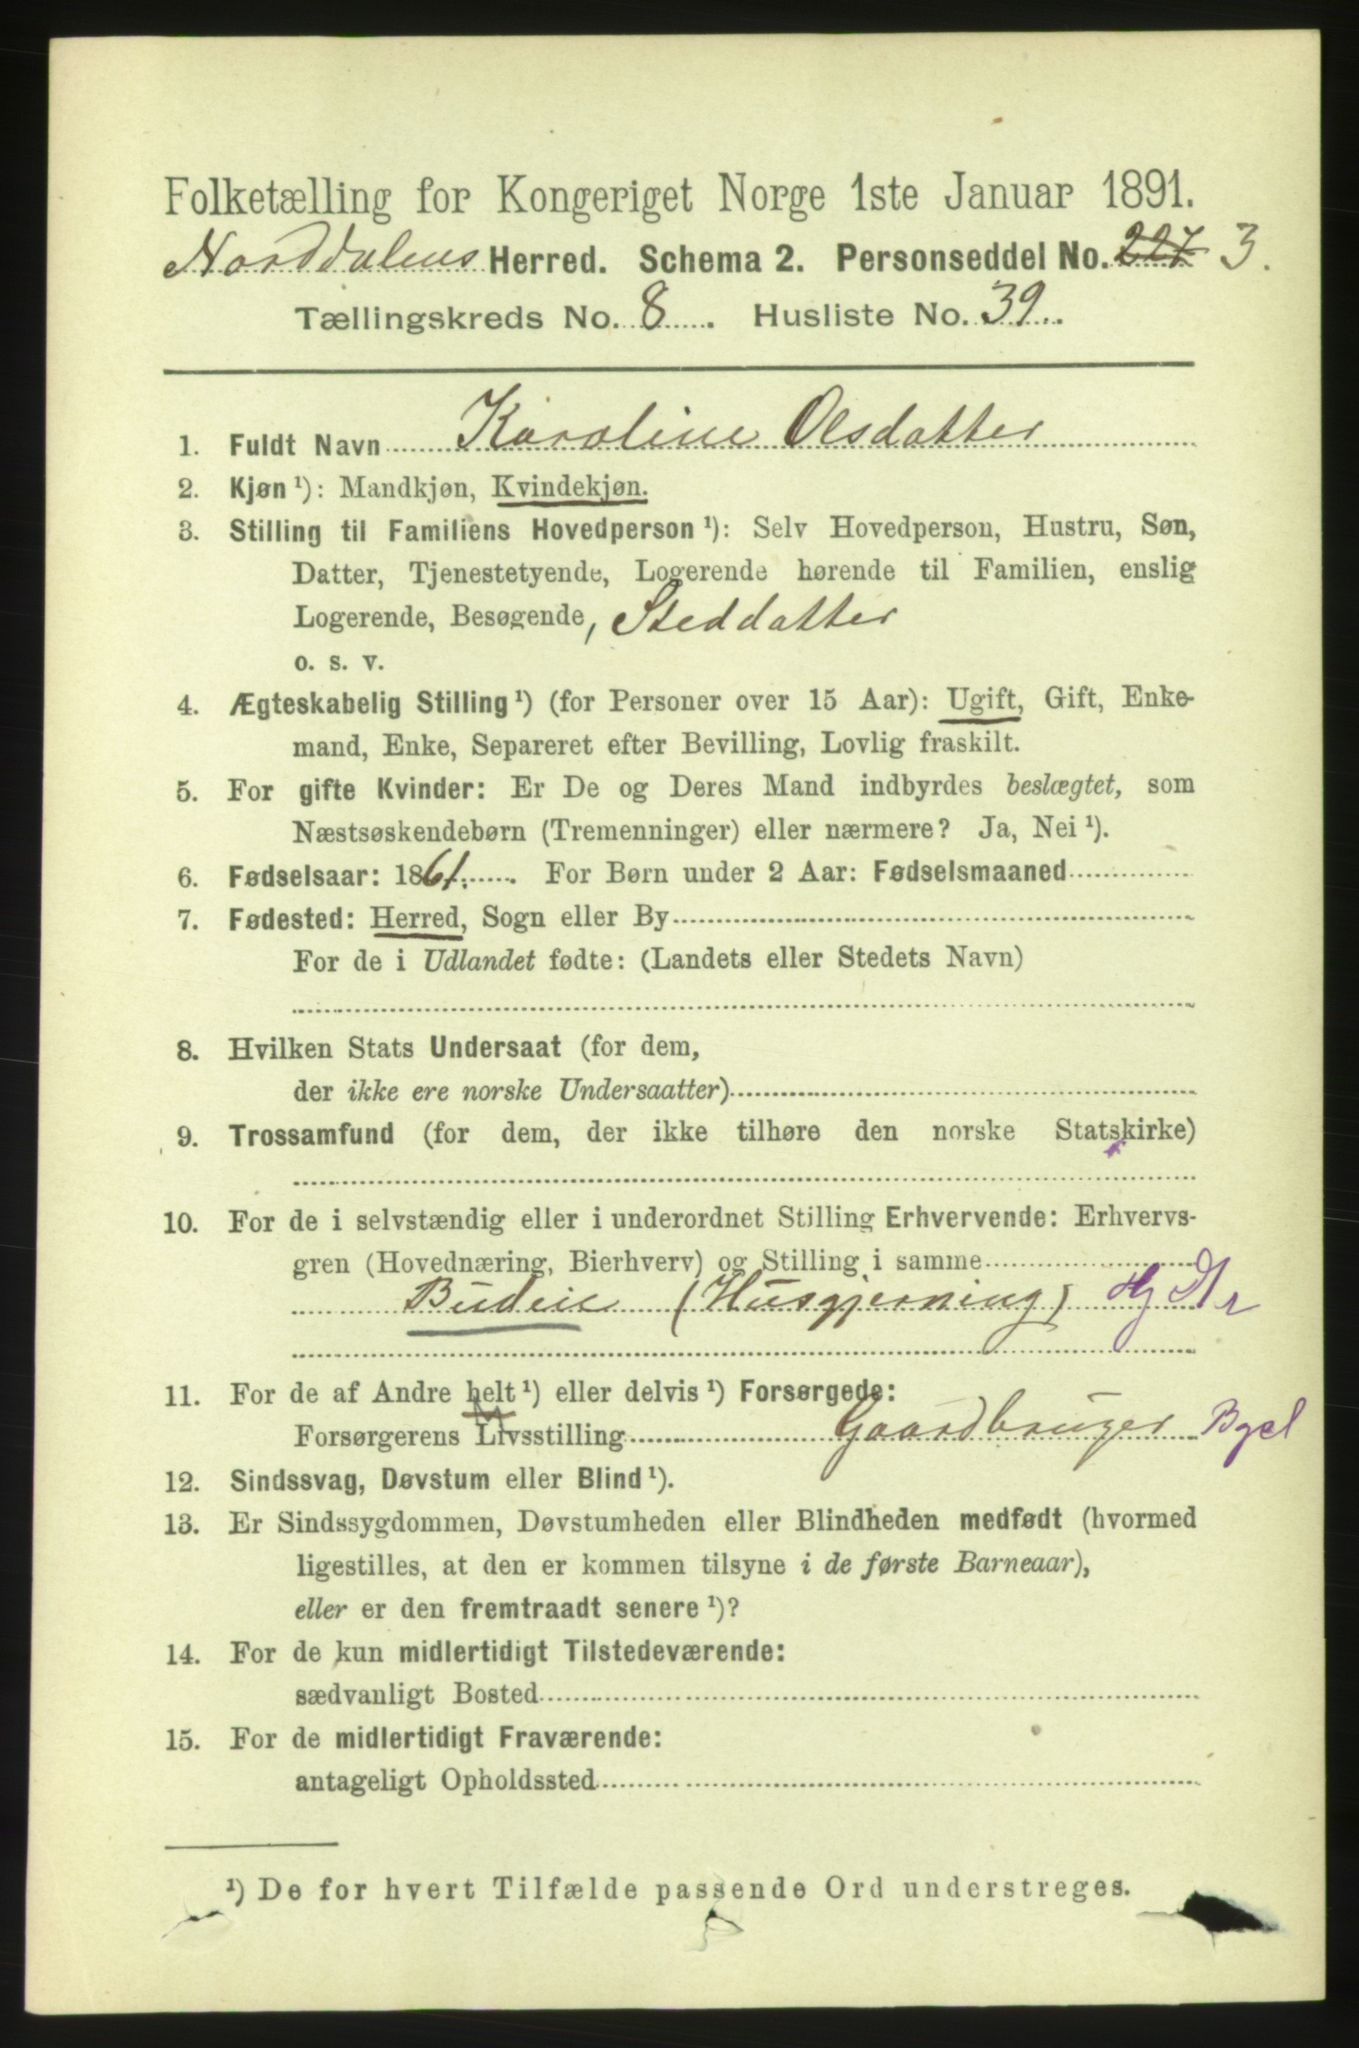 Folketælling for Kongeriget Norge 1ste Januar 1891.
Norddalens Herred. Schema 2. Personseddel No. 227 3.
Tællingskreds No. 8 . Husliste No. 39 .
1. Fuldt Navn Karoline Olsdatter
2. Kjøn ¹): Mandkjøn, Kvindekjøn.
3. Stilling til Familiens Hovedperson ¹): Selv Hovedperson, Hustru, Søn,
Datter, Tjenestetyende, Logerende hørende til Familien, enslig
Logerende, Besøgende, Steddatter
o. s. v.
4. Ægteskabelig Stilling ¹) (for Personer over 15 Aar): Ugift, Gift, Enke-
mand, Enke, Separeret efter Bevilling, Lovlig fraskilt.
5. For gifte Kvinder: Er De og Deres Mand indbyrdes beslægtet, som
Næstsøskendebørn (Tremenninger) eller nærmere? Ja, Nei ¹).
6. Fødselsaar: 1861. For Børn under 2 Aar: Fødselsmaaned
7. Fødested: Herred, Sogn eller By
For de i Udlandet fødte: (Landets eller Stedets Navn)
8. Hvilken Stats Undersaat (for dem,
der ikke ere norske Undersaatter)
9. Trossamfund (for dem, der ikke tilhøre den norske Statskirke)
10. For de i selvstændig eller i underordnet Stilling Erhvervende: Erhvervs-
gren (Hovednæring, Bierhverv) og Stilling i samme
Budeie (Husgjerning)
11. For de af Andre helt ¹) eller delvis ¹) Forsørgede:
Forsørgerens Livsstilling Gaardbruger Bgsl
12. Sindssvag, Døvstum eller Blind ¹).
13. Er Sindssygdommen, Døvstumheden eller Blindheden medfødt (hvormed
ligestilles, at den er kommen tilsyne i de første Barneaar),
eller er den fremtraadt senere ¹)?
14. For de kun midlertidigt Tilstedeværende:
sædvanligt Bosted
15. For de midlertidigt Fraværende:
antageligt Opholdssted
¹) De for hvert Tilfælde passende Ord understreges.